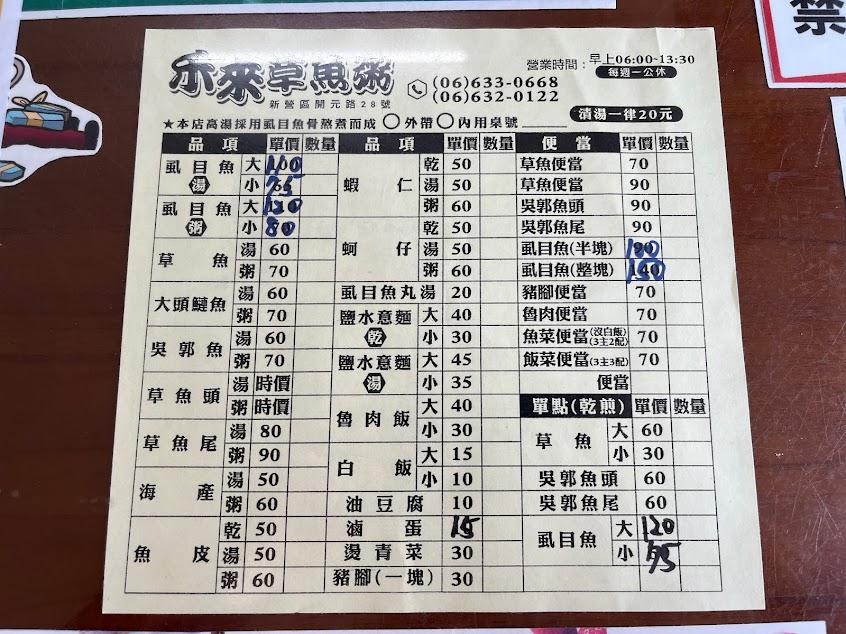 禁
營業時間：早上06:00~13:30
每週一公休
來草魚粥
(06)633-0668
(06)632-0122
新營區開元路28號
清湯一律20元
★本店高湯採用虱目魚骨熬煮而成 外帶 內用桌號
品項 單價 數量 品項 單價 數量 便當 單價 數量
虱目魚 湯 大
小 75
虱目魚 粥 大 120
小 80
草魚 湯 60
粥 70
大頭鰱魚 湯 60
粥 70
吳郭魚 湯 60
粥 70
草魚頭 湯 時價
粥 時價
草魚尾 湯 80
粥 90
海產 湯 50
粥 60
魚皮 乾 50
湯 50
粥 60
蝦仁 乾 50
湯 50
粥 60
蚵仔 乾 50
湯 50
粥 60
虱目魚丸湯 20
鹽水意麵 乾 大 40
小 30
鹽水意麵 湯 大 45
小 35
魯肉飯 大 40
小 30
白飯 大 15
小 10
油豆腐 10
滷蛋 15
燙青菜 30
豬腳(一塊) 30
草魚便當 70
草魚便當 90
吳郭魚頭 90
吳郭魚尾 90
虱目魚(半塊) 90 100
虱目魚(整塊) 140 150
豬腳便當 70
魯肉便當 70
魚菜便當(沒白飯)(3主2配) 70
飯菜便當(3主3配) 70
便當
單點(乾煎) 單價 數量
草魚 大 60
小 30
吳郭魚頭 60
吳郭魚尾 60
虱目魚 大 120
小 75